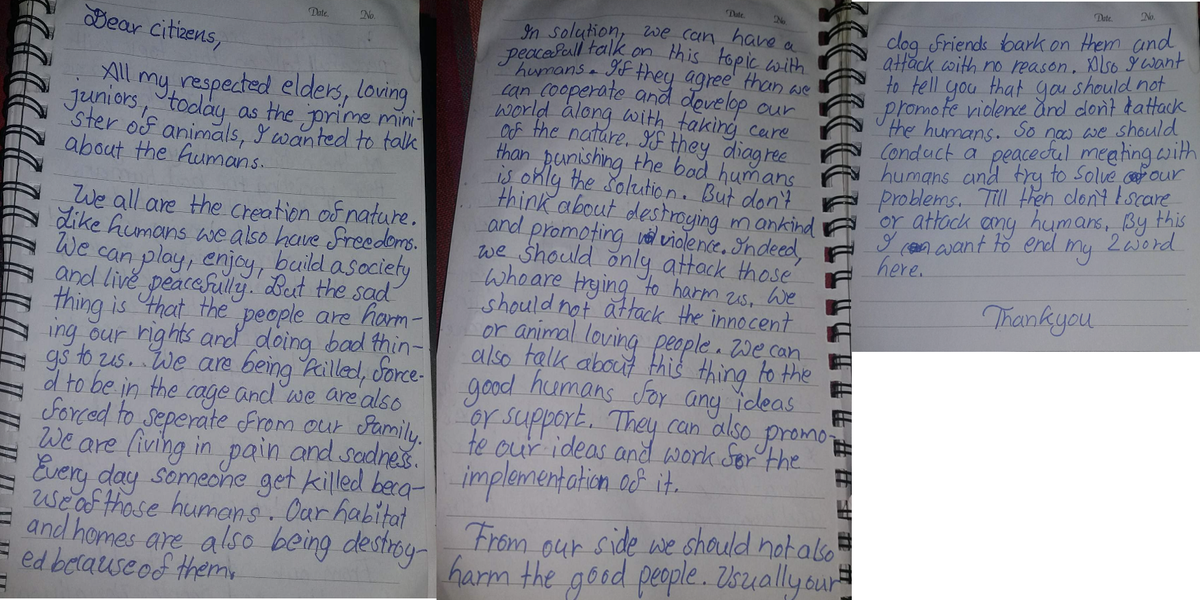 Date. No.
Dear citizens,
All my respected elders, loving
juniors, today as the prime mini-
ster of animals, I wanted to talk
about the humans.
We all are the creation of nature.
Like humans we also have freedoms.
We can play, enjoy, build a society
and live peacefully. But the sad
thing is that the people are harm-
ing our rights and doing bad thin-
gs to us. We are being killed, force-
d to be in the cage and we are also
forced to seperate from our family.
We are living in pain and sadness.
Every day someone get killed beca-
use of those humans. Our habitat
and homes are also being destroy-
ed because of them.
Date. No.
In solution, we can have a
peacefull talk on this topic with
humans. If they agree than we
can cooperate and develop our
world along with taking care
of the nature. If they diagree
than punishing the bad humans
is only the solution. But don't
think about destroying mankind
and promoting violence. Indeed,
we should only attack those
who are trying to harm us. We
should not attack the innocent
or animal loving people. We can
also talk about this thing to the
good humans for any ideas
or support. They can also promo-
te our ideas and work for the
implementation of it.
From our side we should not also
harm the good people. Usually our
Date. No.
dog friends bark on them and
attack with no reason. Also I want
to tell you that you should not
promote violence and don't attack
the humans. So now we should
conduct a peaceful meeting with
humans and try to solve our
problems. Till then don't scare
or attack any humans. By this
I want to end my 2 word
here.
Thankyou